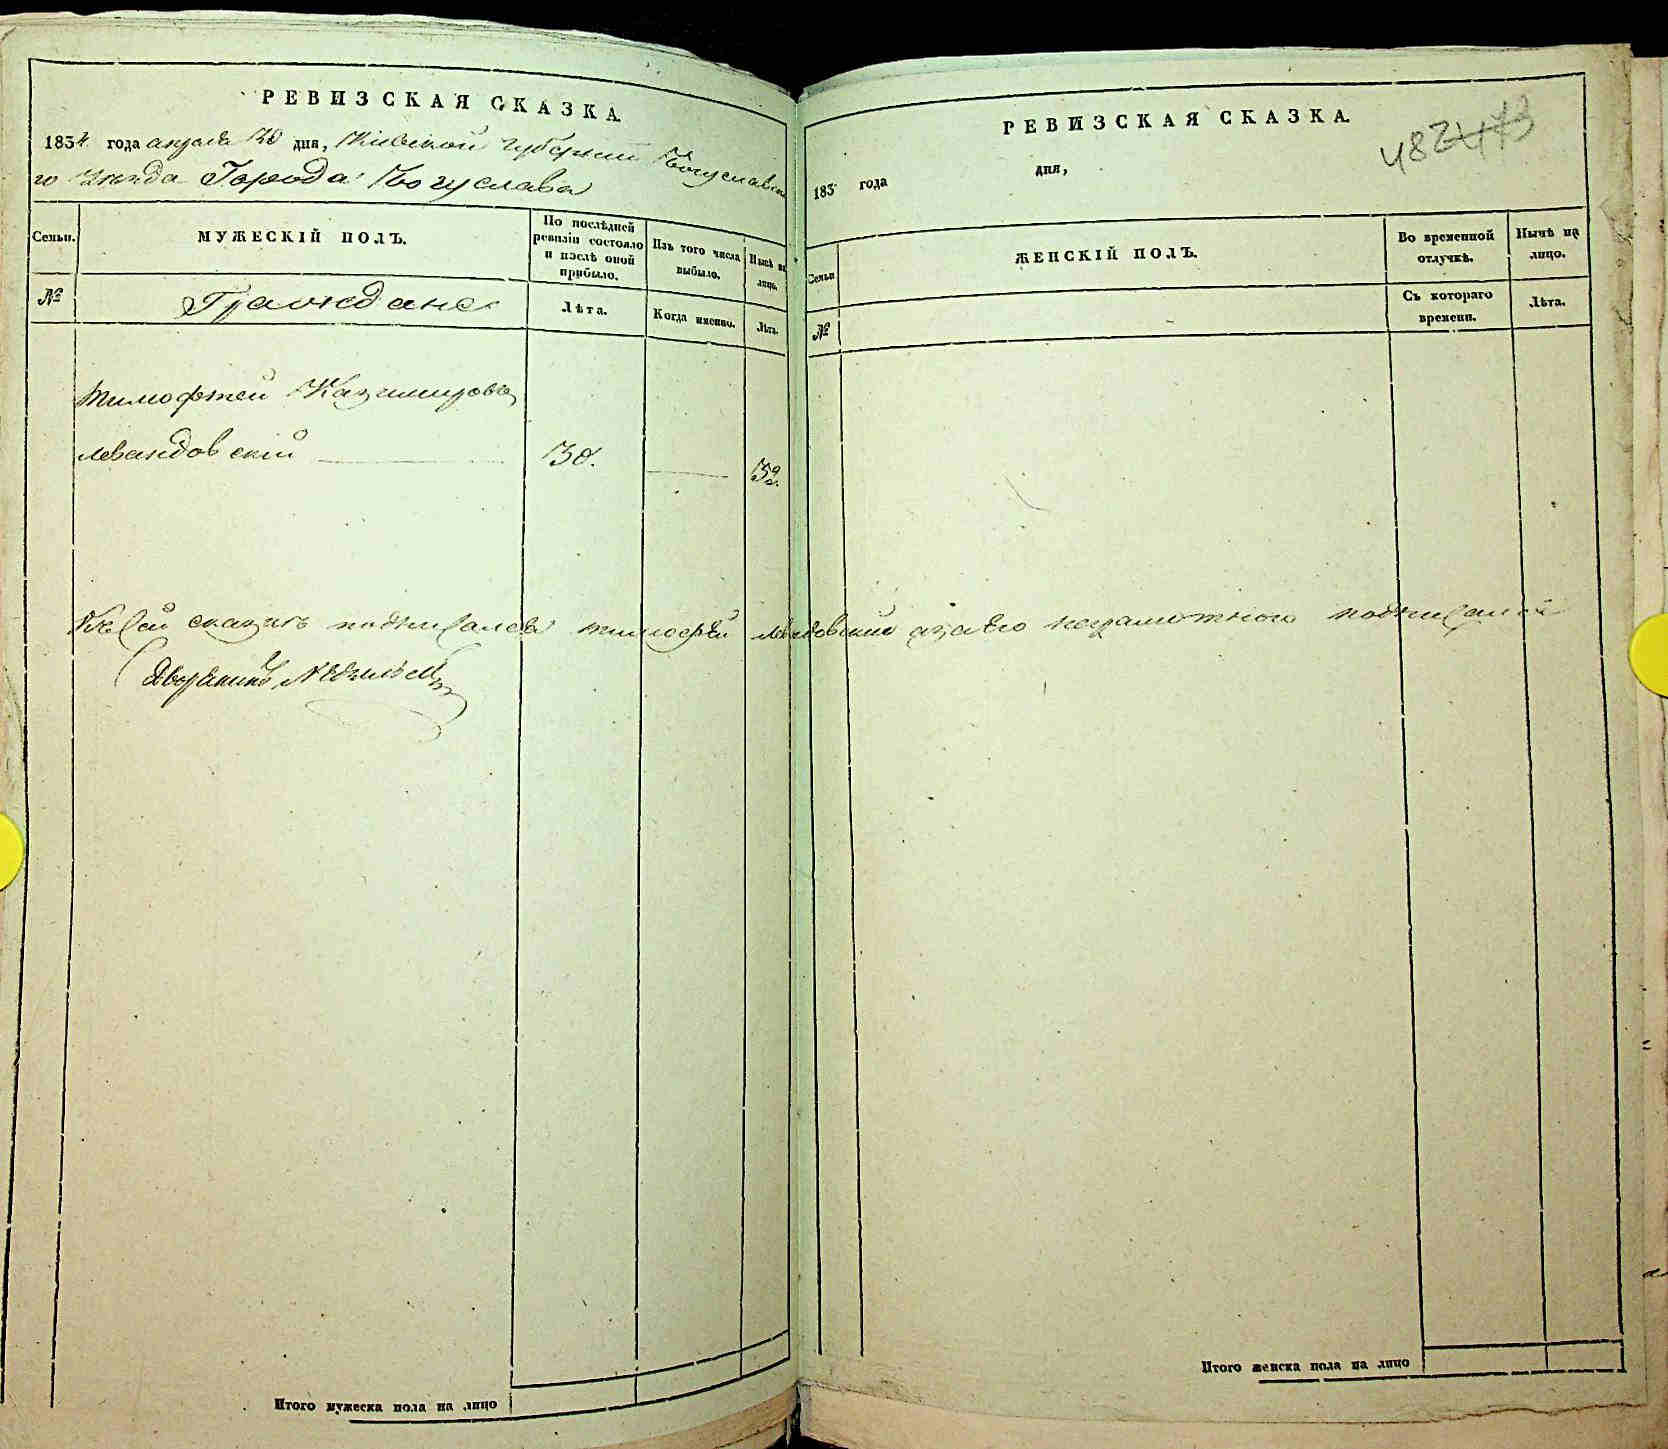 РЕВИЗСКАЯ СКАЗКА.
1834 года апреля 30 дня, Киевской Губернии Богуславска
го уезда Города Богуслава
Семьи.
МУЖЕСКІЙ ПОЛЪ.
По послѣдней ревизіи состояло и послѣ оной прибыло.
Изъ того числа выбыло.
Нынѣ на лицо.
№
Граждане
Лѣта.
Когда именно.
Лѣта.
Тимофтей Казимировъ
Левандовскій
30.
Итого мужеска пола на лицо
РЕВИЗСКАЯ СКАЗКА.
482 473
183 года дня,
Семьи
ЖЕНСКІЙ ПОЛЪ.
Во временной отлучкѣ.
Нынѣ на лицо.
№
Съ котораго времени.
Лѣта.
Итого женска пола на лицо
Ксей сказкѣ подписался Тимофей Левандовский азаего неграмотного подписался
Дворянинъ